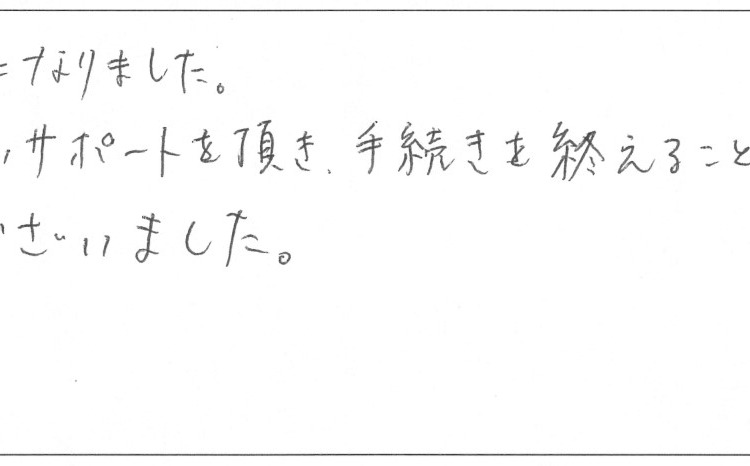 になりました。
いサポートを頂き、手続きを終えること
ございました。